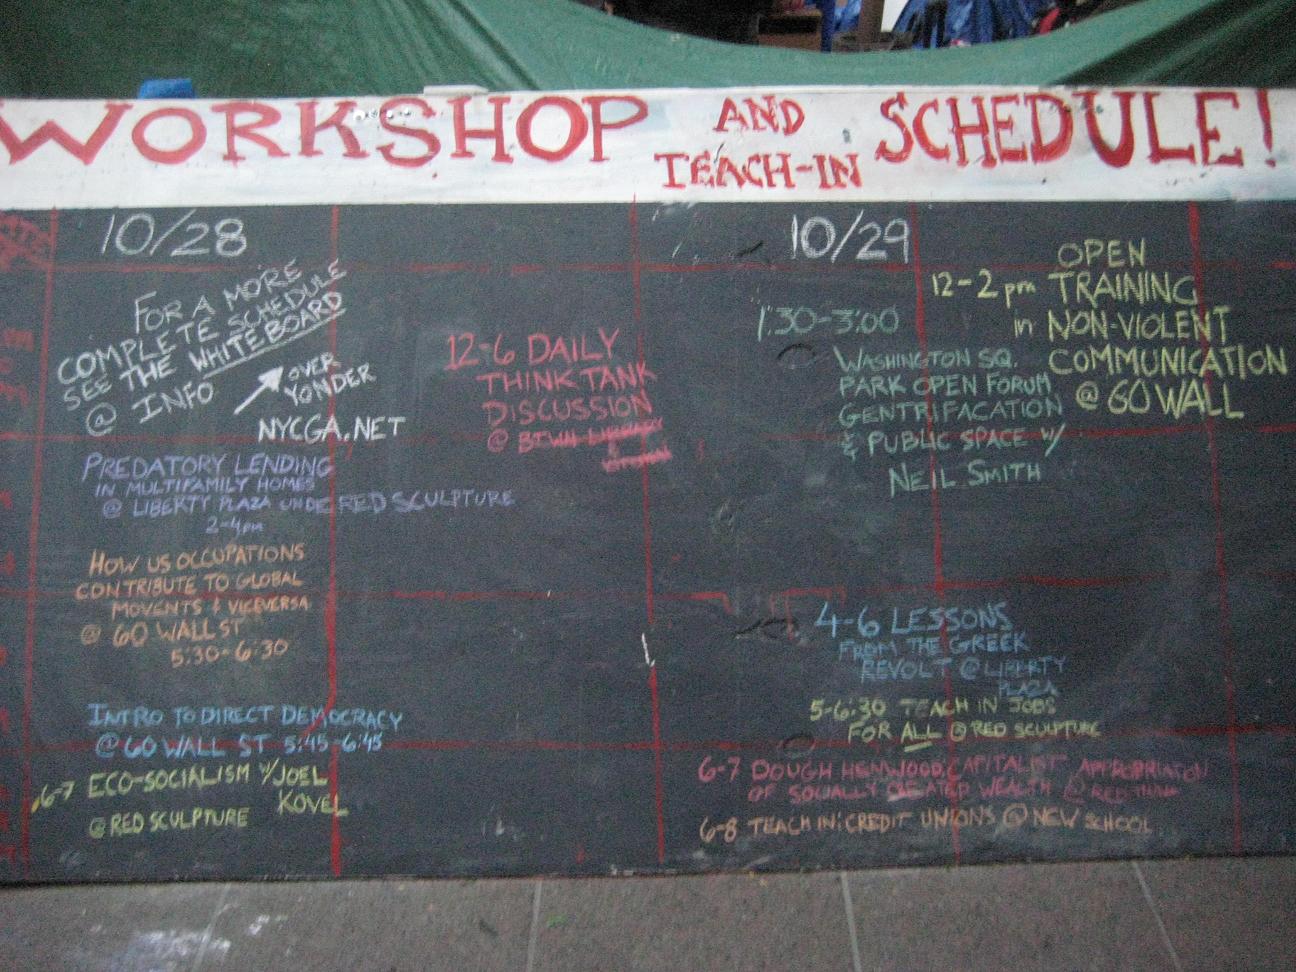 WORKSHOP AND TEACH-IN SCHEDULE!
10/28
FOR A MORE
COMPLETE SCHEDULE
SEE THE WHITEBOARD
@ INFO
OVER
YONDER
NYCGA.NET
PREDATORY LENDING
IN MULTIFAMILY HOMES
@ LIBERTY PLAZA UNDE RED SCULPTURE
2-4pm
HOW US OCCUPATIONS
CONTRIBUTE TO GLOBAL
MOVENTS & VICEVERSA
@ 60 WALL ST
5:30-6:30
INTRO TO DIRECT DEMOCRACY
@ 60 WALL ST 5:45-6:45
6-7 ECO-SOCIALISM W/JOEL
KOVEL
@ RED SCULPTURE
12-6 DAILY
THINK TANK
DISCUSSION
@ BTWN LIBRARY
&
KITCHEN
10/29
12-2pm OPEN
TRAINING
in NON-VIOLENT
COMMUNICATION
@ 60 WALL
1:30-3:00
WASHINGTON SQ.
PARK OPEN FORUM
GENTRIFACATION
& PUBLIC SPACE W/
NEIL SMITH
4-6 LESSONS
FROM THE GREEK
REVOLT @ LIBERTY
PLAZA
5-6:30 TEACH IN JOBS
FOR ALL @ RED SCULPTURE
6-7 DOUGH HENWOOD: CAPITALIST APPROPRIATON
OF SOCIALLY CREATED WEALTH @ RED
6-8 TEACH IN: CREDIT UNIONS @ NEW SCHOOL